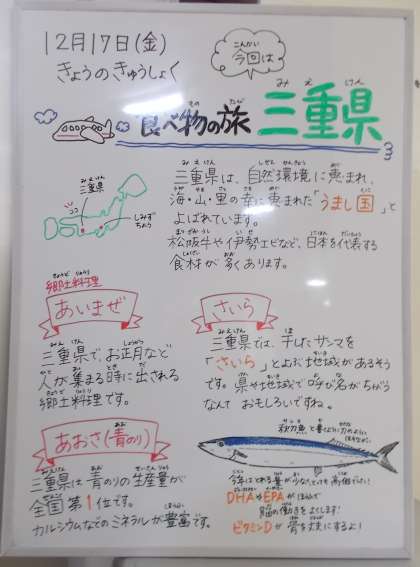 12月17日(金)
きょうのきゅうしょく
こんかい
今回は
食べ物の旅
もの たび
みえけん
三重県
三重県は、自然環境に恵まれ、
海・山・里の幸に恵まれた「うまし国」と
よばれています。
松阪牛や伊勢エビなど、日本を代表する
食材が多くあります。
みえけん
三重県
ココ
しみず
ちょう
きょうど りょうり
郷土料理
あいまぜ
三重県で、お正月など
人が集まる時に出される
郷土料理です。
さいら
三重県では、干したサンマを
「さいら」とよぶ地域があるそう
です。県や地域で呼び名がちがう
なんて おもしろいですね。
あおさ(青のり)
三重県は青のりの生産量が
全国第1位です。
カルシウムなどのミネラルが豊富です。
秋刀魚と書くよ!刀のように
DHAやEPAが
脳の働きをよくします!
ビタミンDが骨を丈夫にするよ!